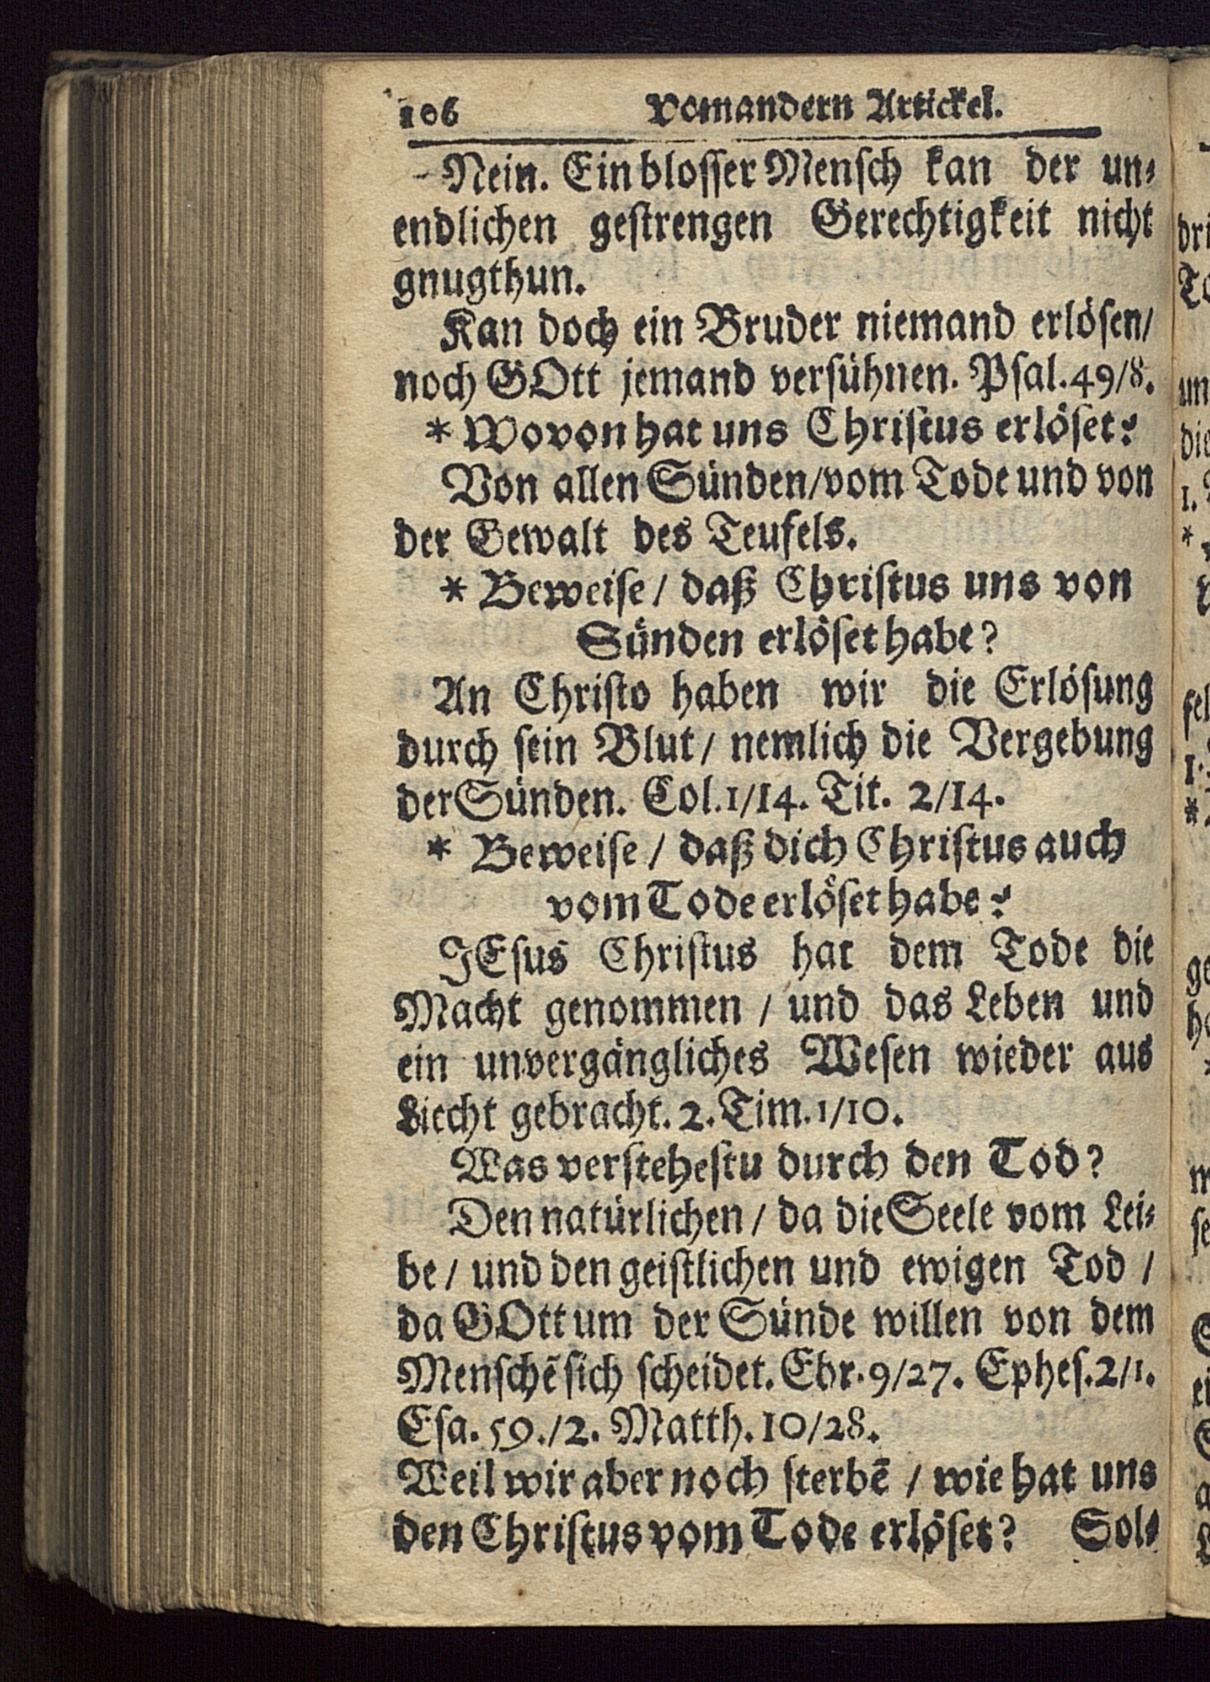 106 Vom andern Artickel.
Nein. Ein blosser Mensch kan der un-
endlichen gestrengen Gerechtigkeit nicht
gnugthun.
Kan doch ein Bruder niemand erlösen/
noch GOtt jemand versühnen. Psal. 49/8.
* Wovon hat uns Christus erlöset?
Von allen Sünden/vom Tode und von
der Gewalt des Teufels.
* Beweise / daß Christus uns von
Sünden erlöset habe?
An Christo haben wir die Erlösung
durch sein Blut / nemlich die Vergebung
der Sünden. Col. 1/14. Tit. 2/14.
* Beweise / daß dich Christus auch
vom Tode erlöset habe?
JEsus Christus hat dem Tode die
Macht genommen / und das Leben und
ein unvergängliches Wesen wieder aus
Liecht gebracht. 2. Tim. 1/10.
Was verstehestu durch den Tod?
Den natürlichen / da die Seele vom Lei-
be / und den geistlichen und ewigen Tod /
da GOtt um der Sünde willen von dem
Menschē sich scheidet. Ebr. 9/27. Ephes. 2/1.
Esa. 59./2. Matth. 10/28.
Weil wir aber noch sterbē / wie hat uns
den Christus vom Tode erlöset? Sol-